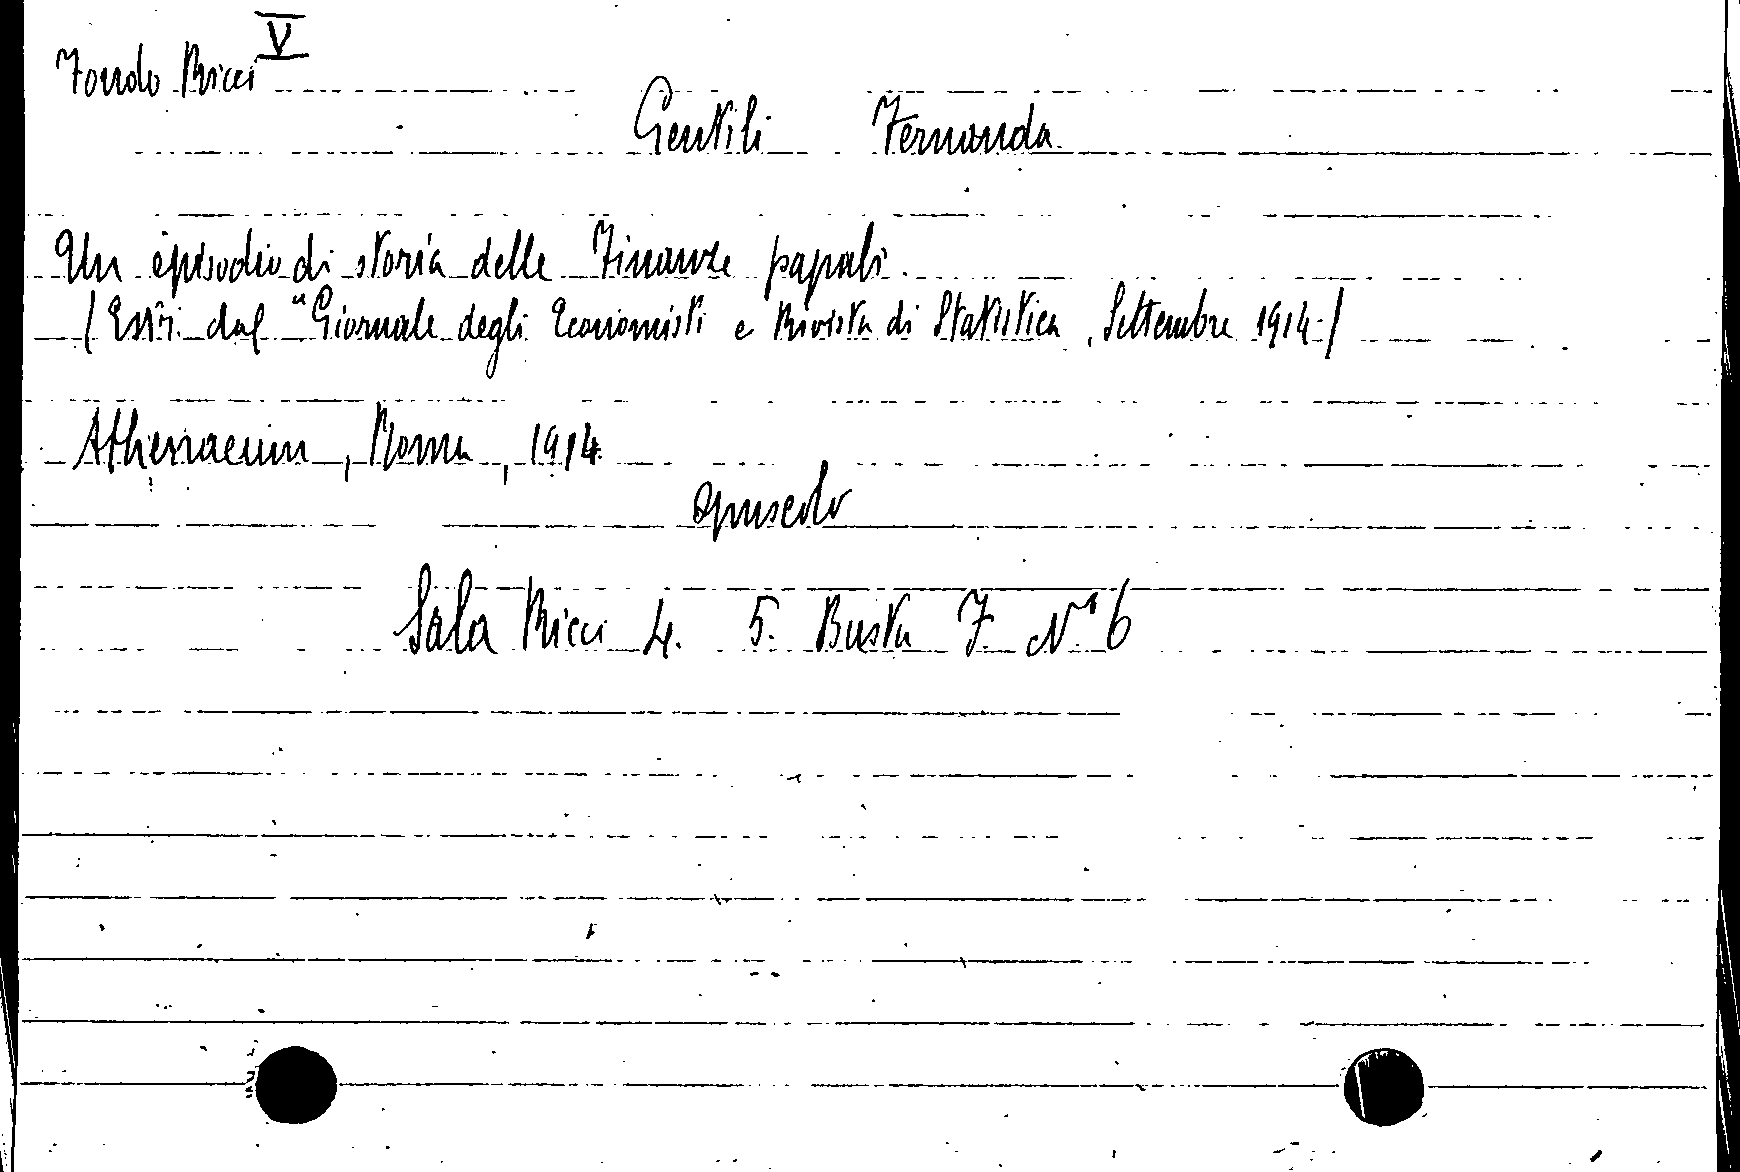 Fondo Ricci V
Gentili Fernanda
Un episodio di storia delle Finanze papali.
(Estr. dal "Giornale degli Economisti e Rivista di Statistica, Settembre 1914.)
Athenaeum, Roma, 1914
opuscolo
Sala Ricci 4. 5. Busta F. N° 6